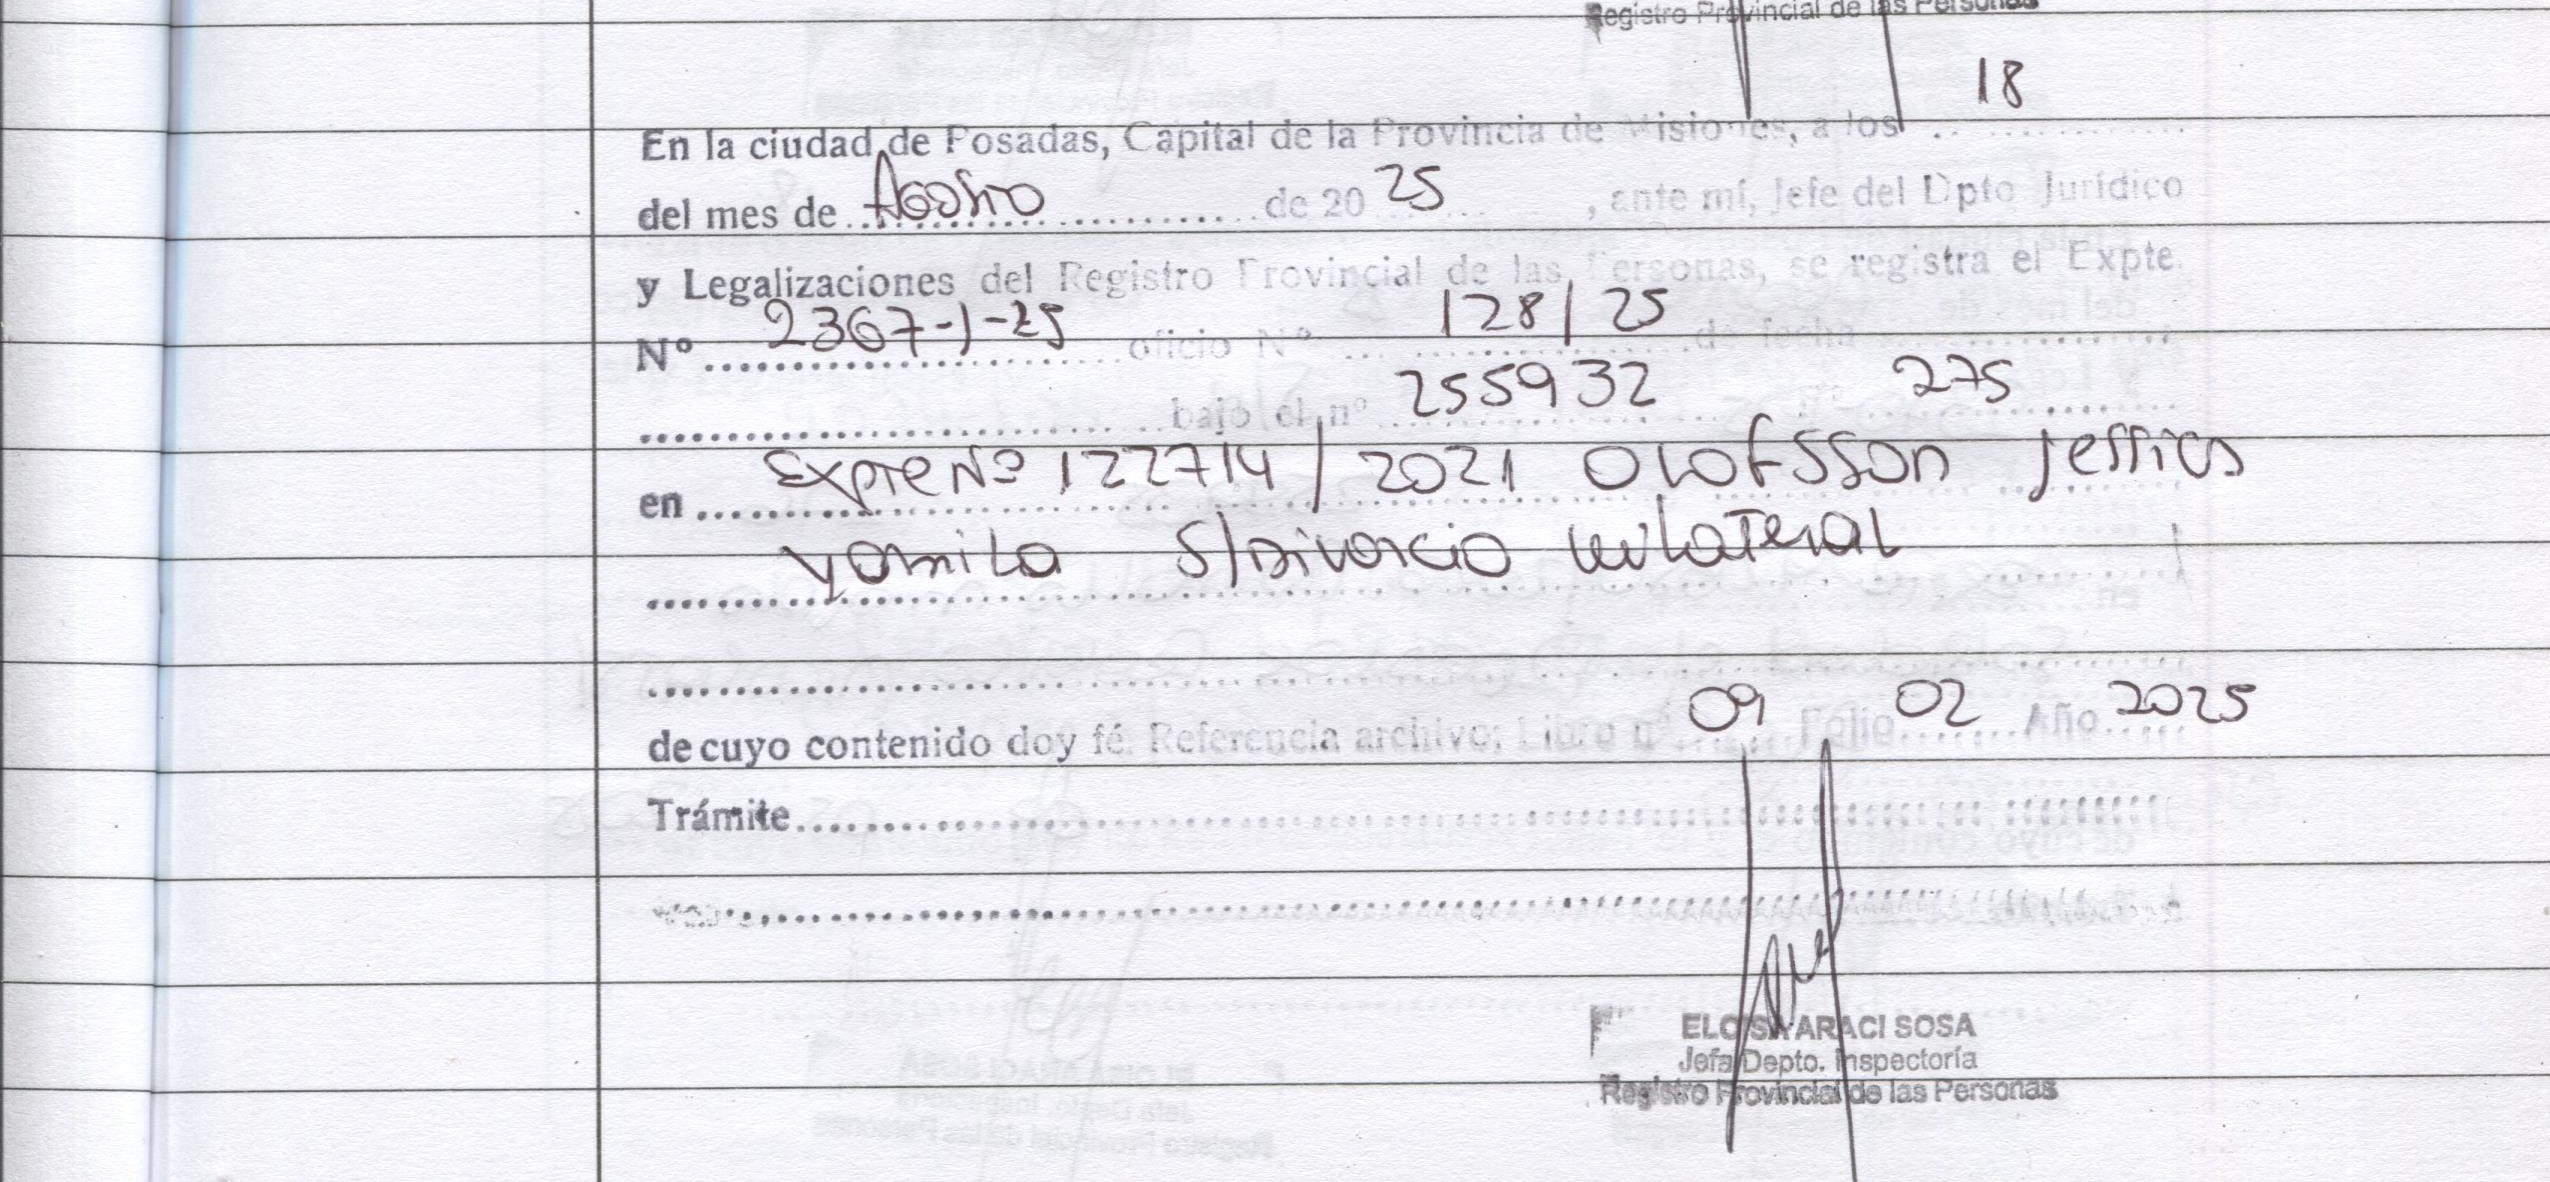 Registro Provincial de las Personas
18
En la ciudad de Posadas, Capital de la Provincia de Misiones, a los
del mes de Agosto de 20 25, ante mí, Jefe del Dpto Jurídico
y Legalizaciones del Registro Provincial de las Personas, se registra el Expte.
Nº 2367-J-25 oficio Nº 128/25 de fecha
bajo el nº 255932 275
en Expte Nº 122714/2021 Olofsson Jessica
Yamila S/Divorcio unilateral
de cuyo contenido doy fé. Referencia archivo: Libro nº 09 Folio 02 Año 2025
Trámite
ELOISA ARACI SOSA
Jefa Depto. Inspectoría
Registro Provincial de las Personas